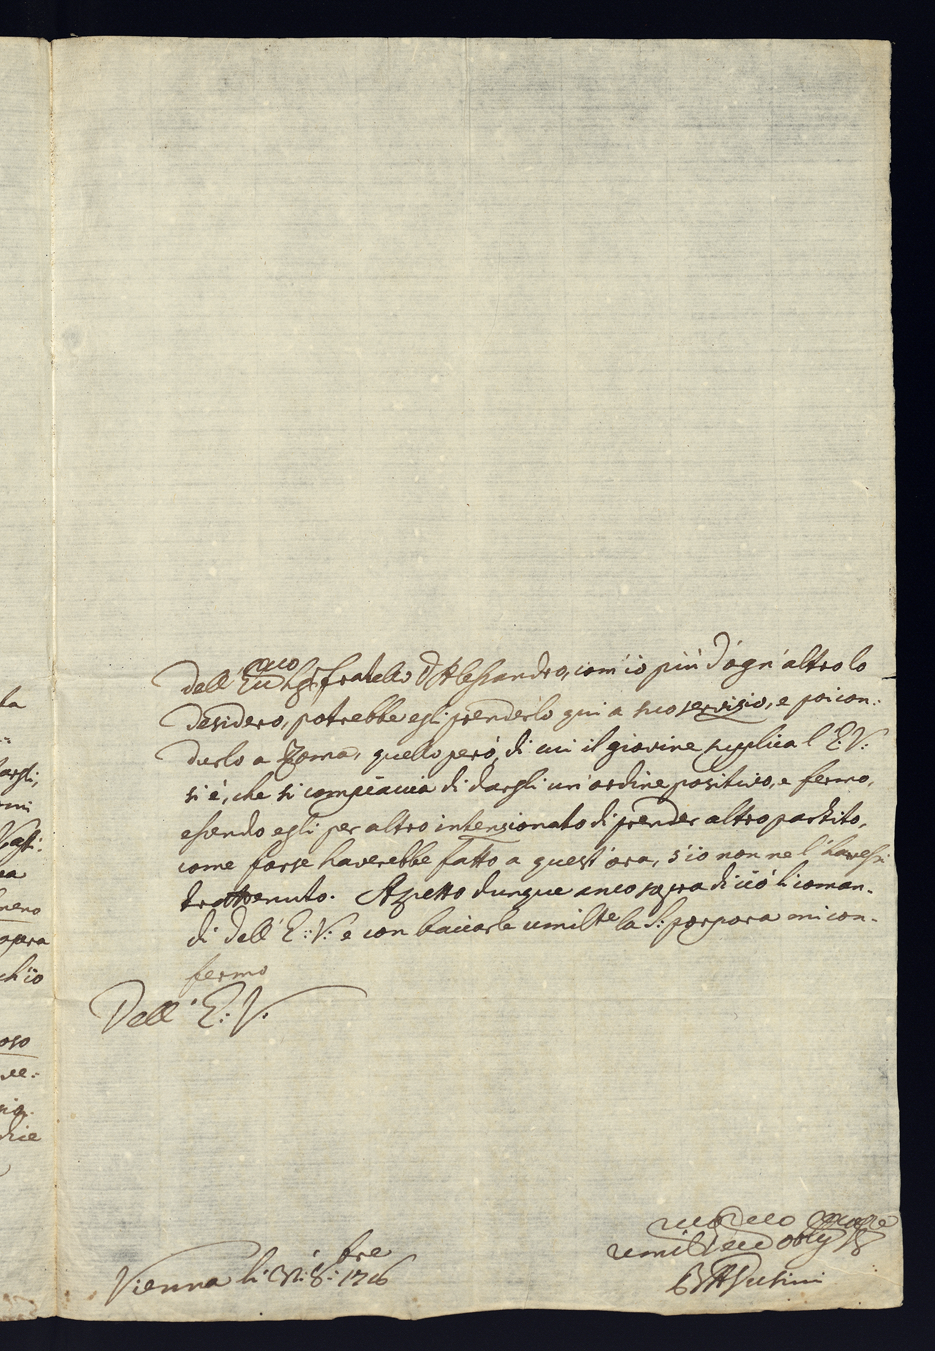 ta
dell' Em.mo Sig.r fratello D. Alessandro, com'io più d'ogn'altro lo
desidero, potrebbe egli prenderlo qui a suo servizio, e poi con:
durlo a Roma, quello però, di cui il giovine supplica l'E: V:
si è, che si compiaccia di dargli un'ordine positivo, e fermo,
essendo egli per altro intenzionato di prender altro partito,
come forse haverebbe fatto a quest'ora, s'io non ne l'havessi
trattenuto. Aspetto dunque anco sopra di ciò li coman-
di dell' E: V: e con baciarle umilte la S: porpora mi con-
fermo
Dell' E: V.
Vienna li 8:bre 1716
umil